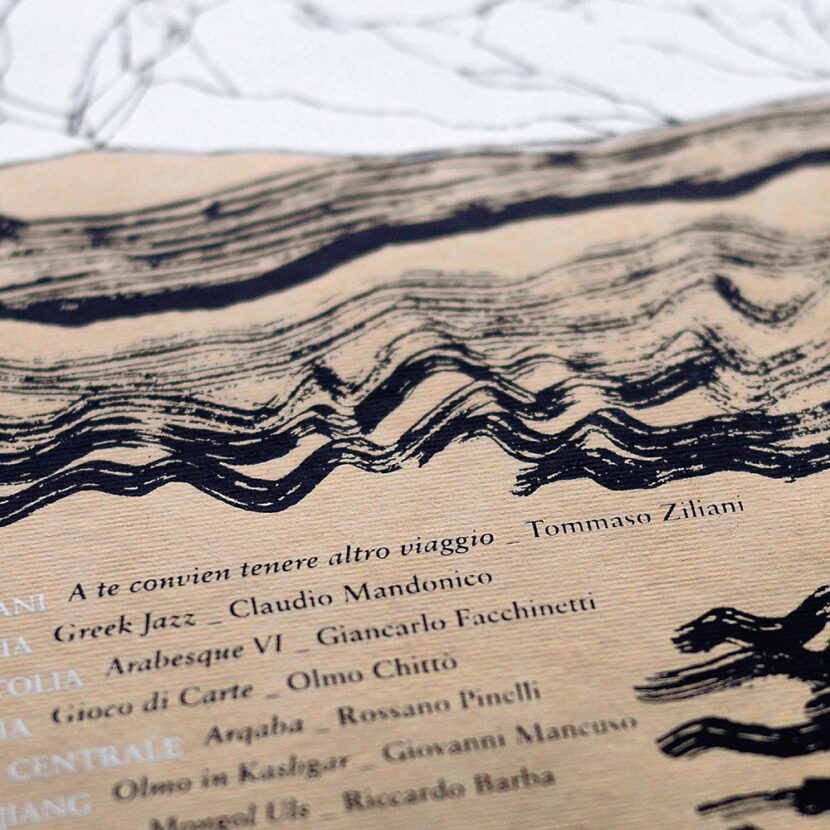 ANI A te convien tenere altro viaggio _ Tommaso Ziliani
IA Greek Jazz _ Claudio Mandonico
COLIA Arabesque VI _ Giancarlo Facchinetti
IA Gioco di Carte _ Olmo Chittò
CENTRALE Arqaba _ Rossano Pinelli
JIANG Olmo in Kashgar _ Giovanni Mancuso
Mongol Uls _ Riccardo Barba